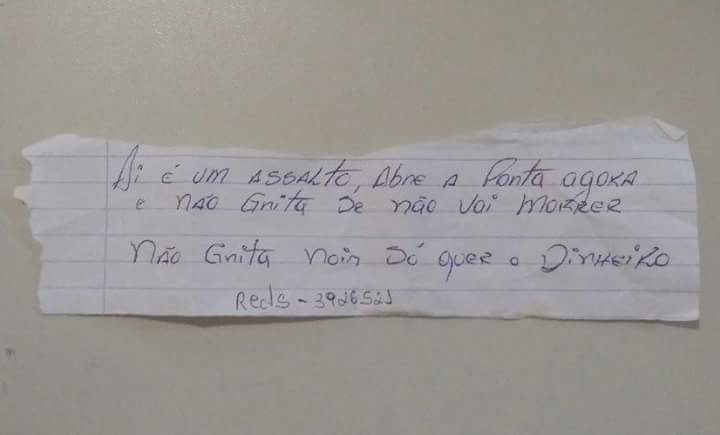 Ai é um assalto, Abre a Porta agora
e não Grita se não vai morrer
Não Grita nois só quer o Dinheiro
Reds - 3926521